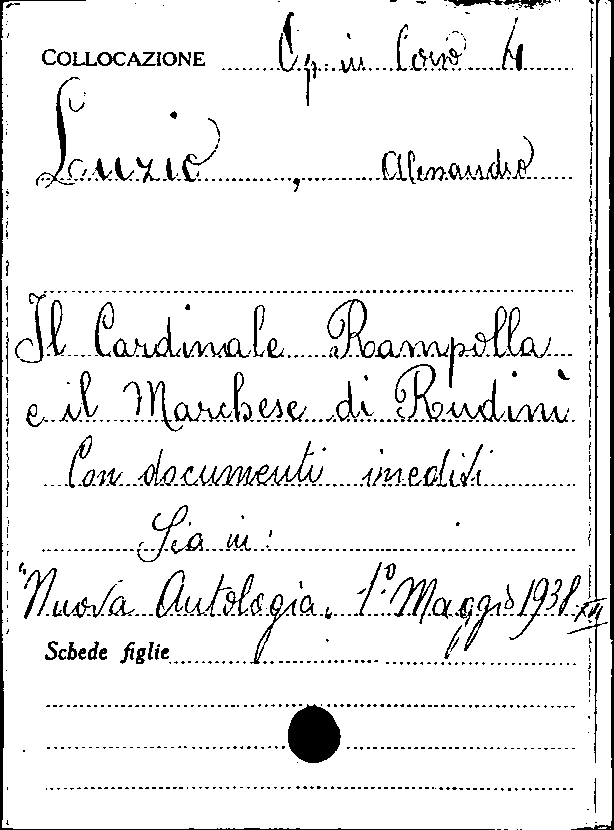 COLLOCAZIONE Op. in Corso 4
Luzio, Alessandro
Il Cardinale Rampolla
e il Marchese di Rudinì
Con documenti inediti
Sia in:
"Nuova Antologia. 1.º Maggio 1938
Schede figlie